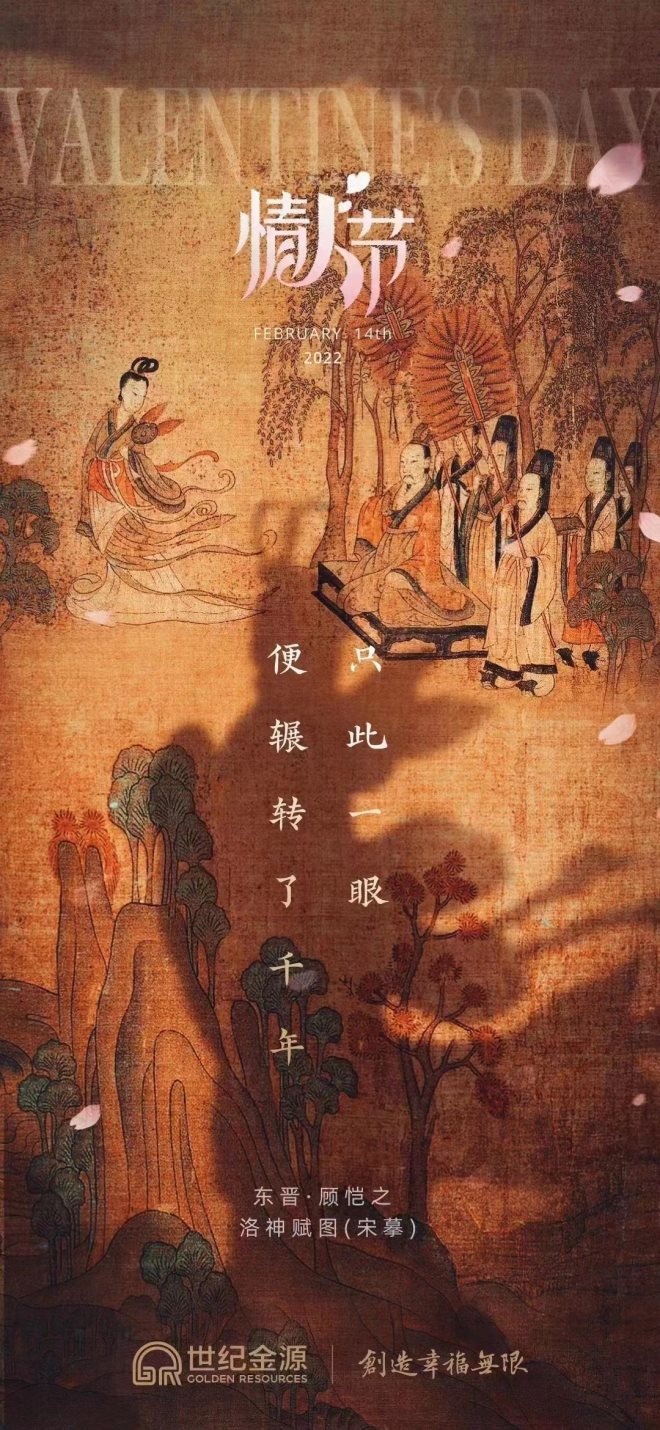 VALENTINE'S DAY
情人节
FEBRUARY. 14th
2022
只此一眼
便辗转了千年
东晋·顾恺之
洛神赋图(宋摹)
世纪金源
GOLDEN RESOURCES
創造幸福無限